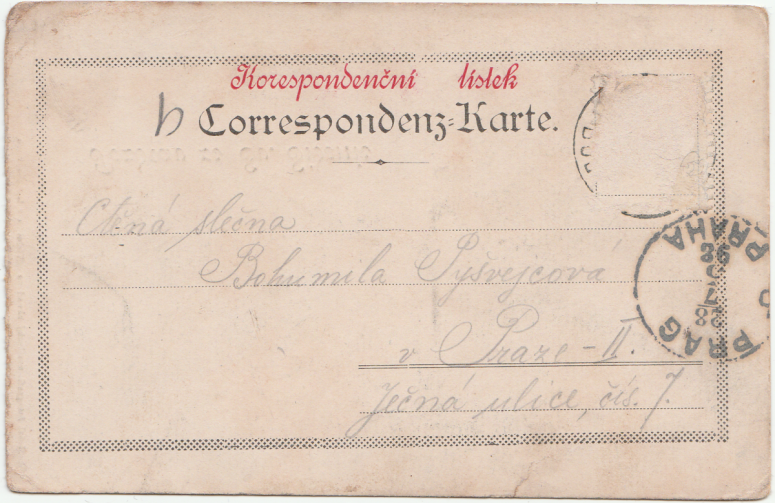 Korespondenční lístek
Correspondenz-Karte.
Ctěná slečna
Bohumila Pyšvejcová
v Praze-II.
Ječná ulice, čís. 7.
PRAG
PRAHA
28
7
98